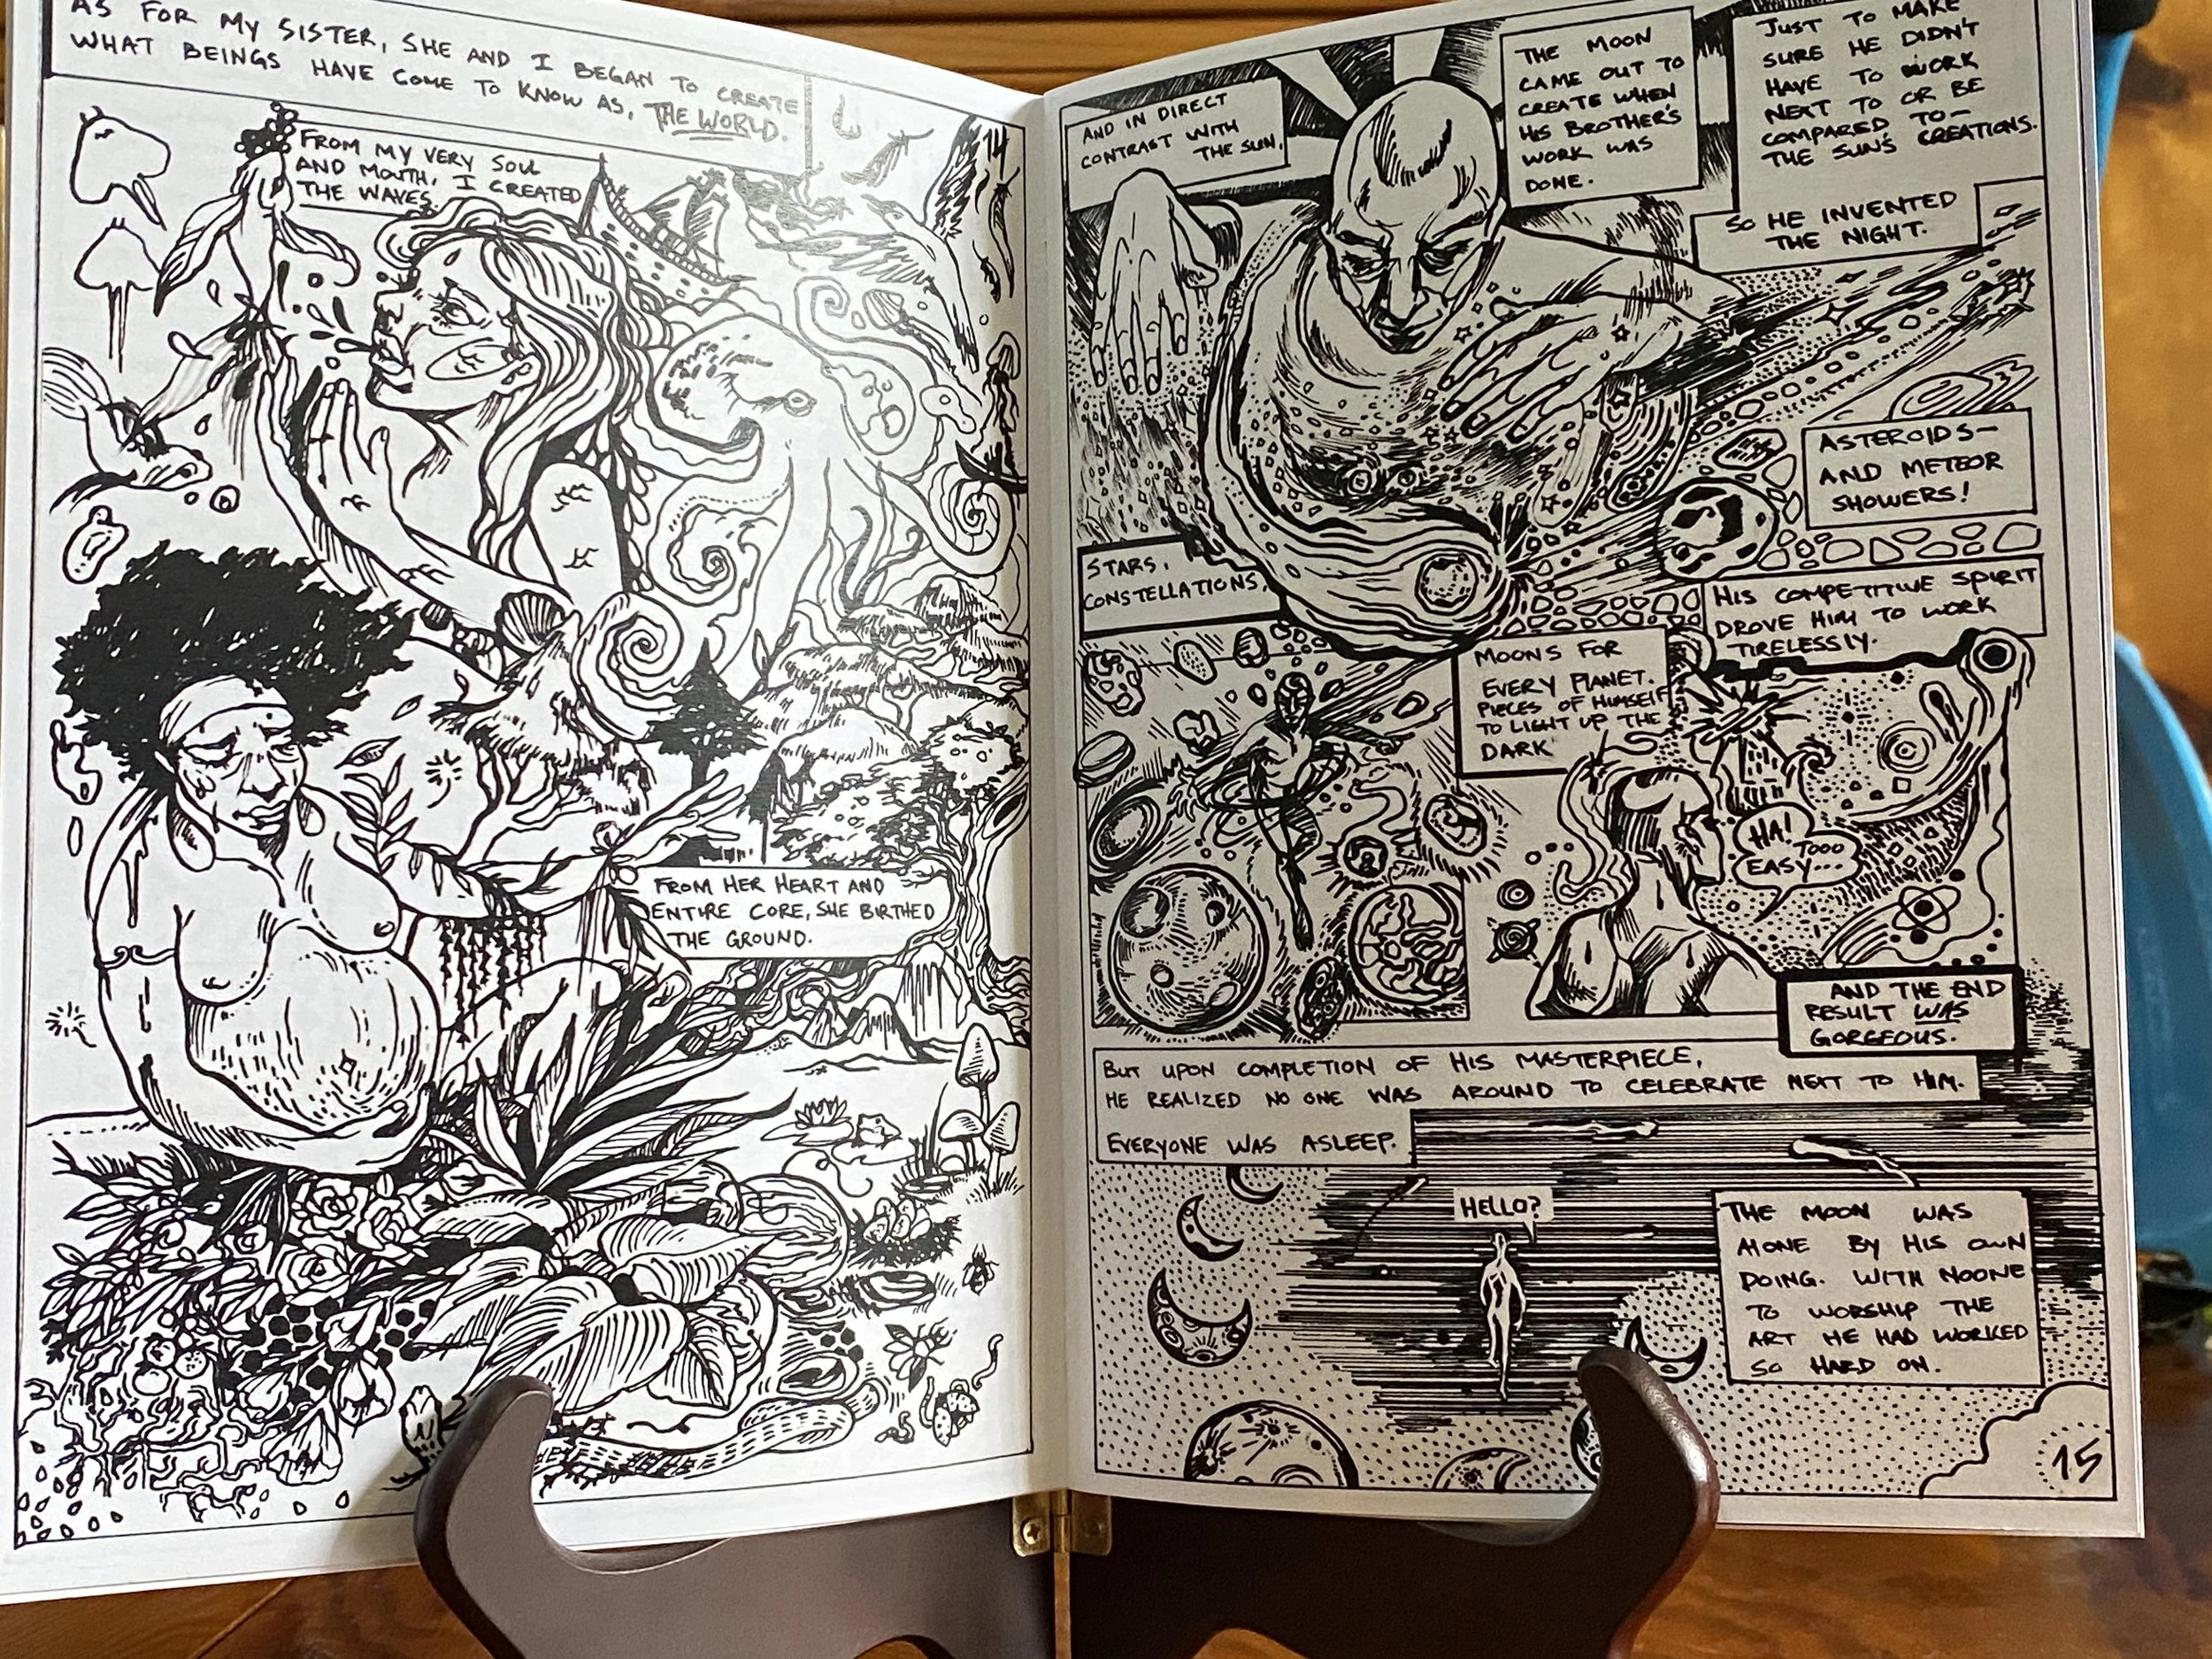 AS FOR MY SISTER, SHE AND I BEGAN TO CREATE
WHAT BEINGS HAVE COME TO KNOW AS, THE WORLD.
FROM MY VERY SOUL
AND MOUTH, I CREATED
THE WAVES.
FROM HER HEART AND
ENTIRE CORE, SHE BIRTHED
THE GROUND.
AND IN DIRECT
CONTRAST WITH
THE SUN,
THE MOON
CAME OUT TO
CREATE WHEN
HIS BROTHER'S
WORK WAS
DONE.
JUST TO MAKE
SURE HE DIDN'T
HAVE TO WORK
NEXT TO OR BE
COMPARED TO-
THE SUN'S CREATIONS.
SO HE INVENTED
THE NIGHT.
STARS,
CONSTELLATIONS,
ASTEROIDS-
AND METEOR
SHOWERS!
MOONS FOR
EVERY PLANET.
PIECES OF HIMSELF
TO LIGHT UP THE
DARK
HIS COMPETITIVE SPIRIT
DROVE HIM TO WORK
TIRELESSLY.
HA!
TOOO
EASY...
AND THE END
RESULT WAS
GORGEOUS.
BUT UPON COMPLETION OF HIS MASTERPIECE,
HE REALIZED NO ONE WAS AROUND TO CELEBRATE NEXT TO HIM.
EVERYONE WAS ASLEEP.
HELLO?
THE MOON WAS
ALONE BY HIS OWN
DOING. WITH NOONE
TO WORSHIP THE
ART HE HAD WORKED
SO HARD ON.
15